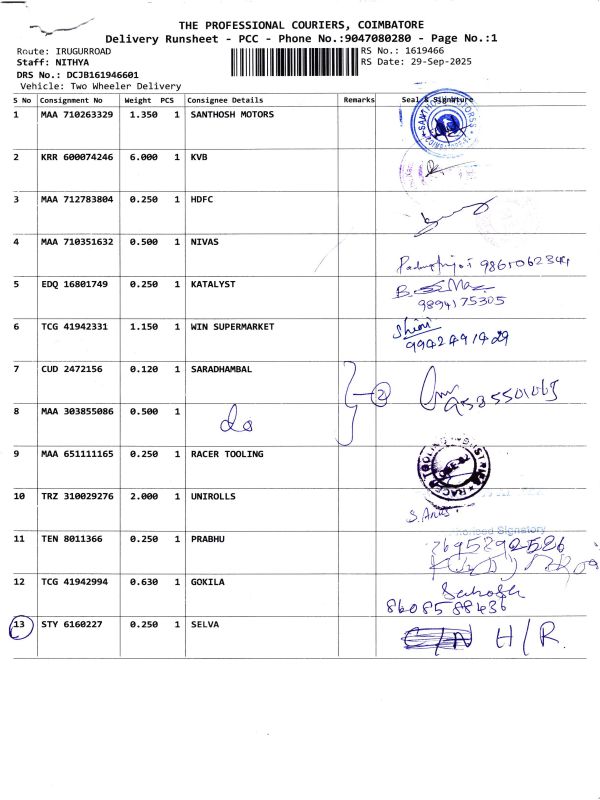 THE PROFESSIONAL COURIERS, COIMBATORE
Delivery Runsheet - PCC - Phone No.:9047080280 - Page No.:1
Route: IRUGURROAD RS No.: 1619466
Staff: NITHYA RS Date: 29-Sep-2025
DRS No.: DCJB161946601
Vehicle: Two Wheeler Delivery
S No Consignment No Weight PCS Consignee Details Remarks Seal & Signature
1 MAA 710263329 1.350 1 SANTHOSH MOTORS
2 KRR 600074246 6.000 1 KVB
3 MAA 712783804 0.250 1 HDFC
4 MAA 710351632 0.500 1 NIVAS
5 EDQ 16801749 0.250 1 KATALYST
9894175305
6 TCG 41942331 1.150 1 WIN SUPERMARKET
9942491429
7 CUD 2472156 0.120 1 SARADHAMBAL
2 9535501065
8 MAA 303855086 0.500 1 do
9 MAA 651111165 0.250 1 RACER TOOLING
RACER TOOLING INDUSTRIES
10 TRZ 310029276 2.000 1 UNIROLLS
Authorised Signatory
11 TEN 8011366 0.250 1 PRABHU
12 TCG 41942994 0.630 1 GOKILA
8608588436
13 STY 6160227 0.250 1 SELVA C/N H/R.